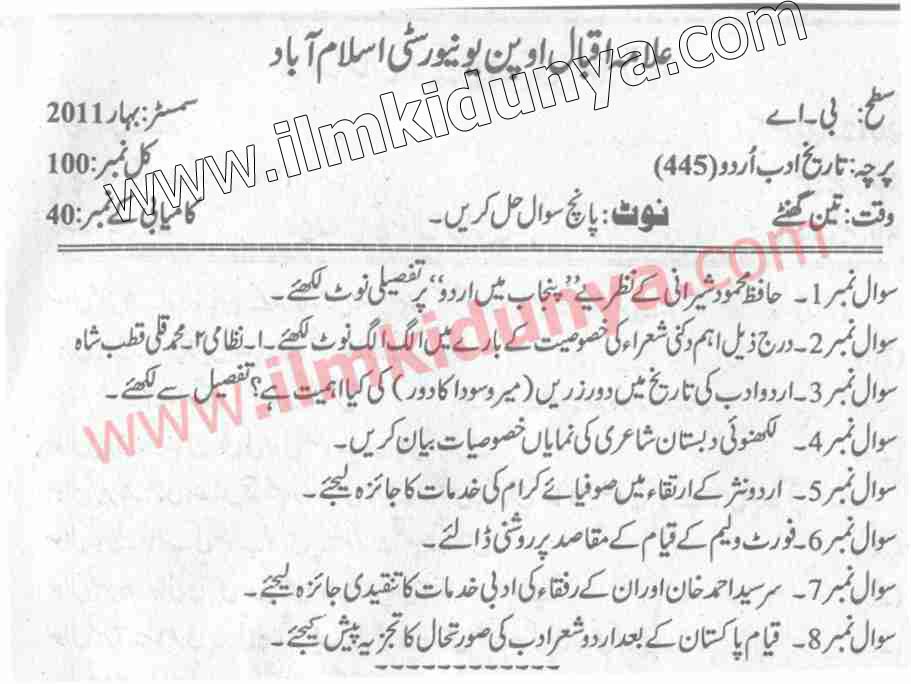 علامہ اقبال اوپن یونیورسٹی اسلام آباد
سطح: بی۔اے سمسٹر: بہار 2011
پرچہ: تاریخ ادب اُردو (445) کل نمبر: 100
وقت: تین گھنٹے نوٹ: پانچ سوال حل کریں۔ کامیابی کے نمبر: 40
سوال نمبر 1۔ حافظ محمود شیرانی کے نظریے "پنجاب میں اردو" پر تفصیلی نوٹ لکھئے۔
سوال نمبر 2۔ درج ذیل اہم دکنی شعراء کی خصوصیت کے بارے میں الگ الگ نوٹ لکھئے۔ ۱۔ نظامی ۲۔ محمد قلی قطب شاہ
سوال نمبر 3۔ اردو ادب کی تاریخ میں دور زریں (میر و سودا کا دور) کی کیا اہمیت ہے؟ تفصیل سے لکھئے۔
سوال نمبر 4۔ لکھنوئی دبستان شاعری کی نمایاں خصوصیات بیان کریں۔
سوال نمبر 5۔ اردو نثر کے ارتقاء میں صوفیائے کرام کی خدمات کا جائزہ لیجئے۔
سوال نمبر 6۔ فورٹ ولیم کے قیام کے مقاصد پر روشنی ڈالئے۔
سوال نمبر 7۔ سرسید احمد خان اور ان کے رفقاء کی ادبی خدمات کا تنقیدی جائزہ لیجئے۔
سوال نمبر 8۔ قیام پاکستان کے بعد اردو شعر ادب کی صورتحال کا تجزیہ پیش کیجئے۔
www.ilmkidunya.com
www.ilmkidunya.com